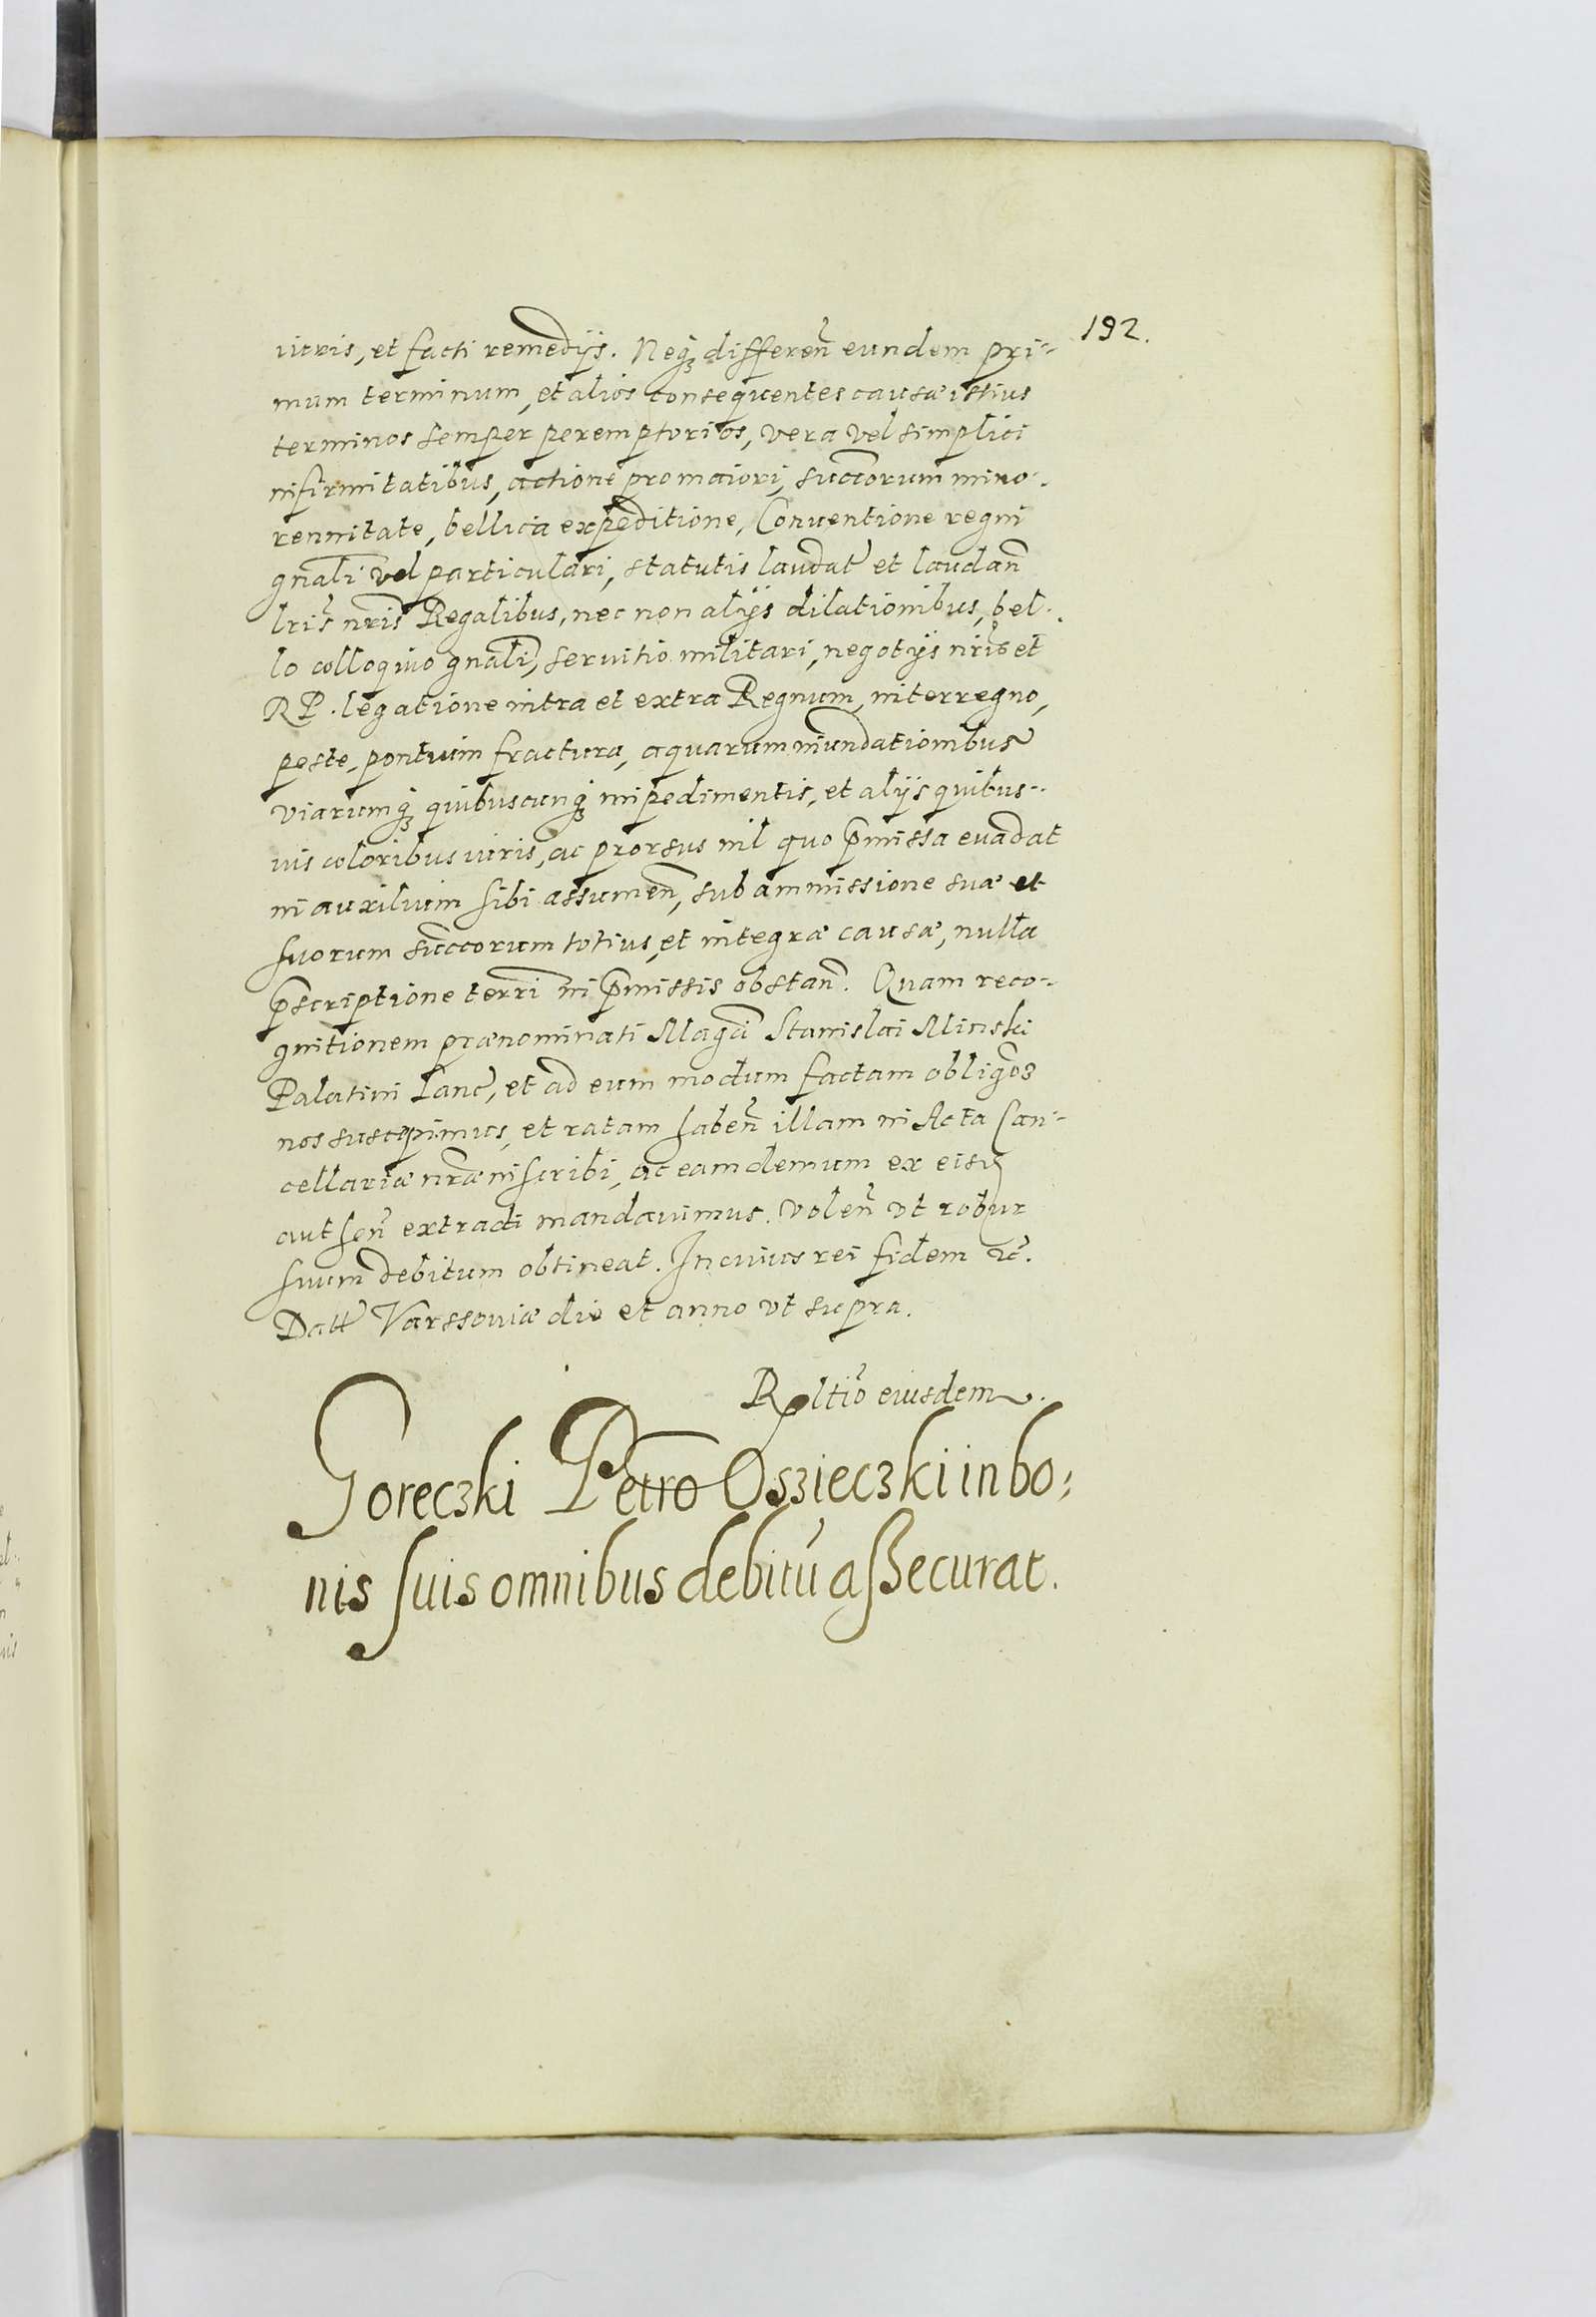 192.
iuris, et facti remedijs. Neq₃ differen̄ eundem pri-
mum terminum, et alios consequentes causæ istius
terminos semper peremptorios, vera vel simplici
infirmitatibus, actione pro maiori, succorum mino-
rennitate, bellica expeditione, Conventione regni
gnāli vel particulari, statutis laudat̄ et laudan̄
lrīs nrīs Regalibus, nec non alijs dilationibus, bel-
lo colloquio gnāli, servitio militari, negotijs nrīs et
RP. legatione intra et extra Regnum, interregno,
peste, pontium fractura, aquarum inundationibus
viarumq₃ quibuscunq₃ impedimentis, et alijs quibus-
vis coloribus iuris, ac prorsus nil quo p̄missa evadat
in auxilium sibi assumen̄, sub ammissione suæ et
suorum succorum totius, et integræ causæ, nulla
p̄scriptione terrī in p̄missis obstan̄. Quam reco-
gnitionem prænominati Magcī Stanislai Minski
Palatini Lanc̄, et ad eum modum factam oblig̅o̅s
nos suscepimus, et ratam haben̄ illam in Acta Can-
cellariæ nrǣ inscribi, ac eam demum ex eisd̄
authen̄ extradi mandavimus. Volen̄ vt robur
suum debitum obtineat. In cuius rei fidem &c̄.
Datt̄ Varssoviæ die et anno vt supra.
Rltīo eiusdem.
Goreczki Petro Oszieczki in bo-
nis suis omnibus debitū assecurat.